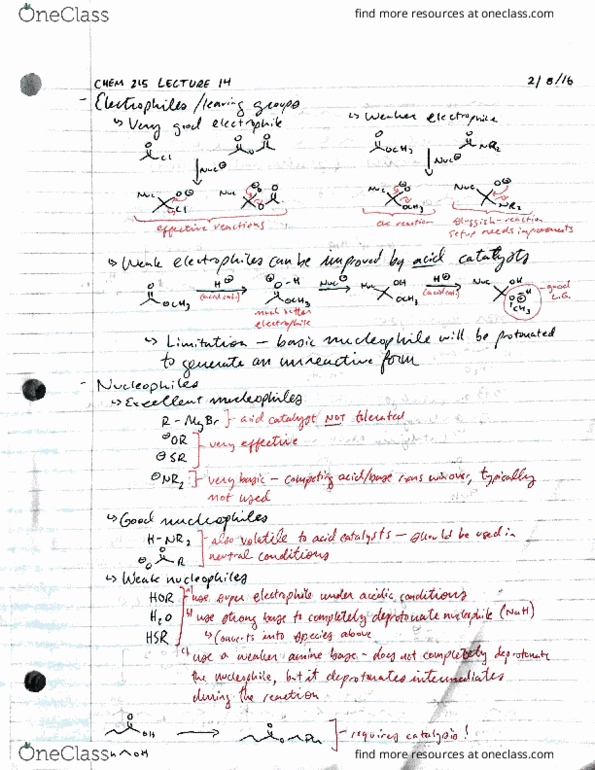 OneClass
find more resources at oneclass.com
CHEM 215 LECTURE 14
2/8/16
- Electrophiles/leaving groups
↳ Very good electrophile
↳ Weaker electrophile
Cl
O
O O
OCH₃
O
NR₂
O
Nuc⊖
Nuc⊖
Nuc O⊖ Cl
Nuc O⊖ O O
Nuc O⊖ OCH₃
Nuc O⊖ NR₂
effective reactions
ok reaction
Sluggish reaction
setup needs improvements
↳ Weak electrophiles can be improved by acid catalysts
O OCH₃
H⊕
(acid cat.)
⊕O-H OCH₃
Nuc⊖
Nuc OH OCH₃
H⊕
(acid cat.)
Nuc OH
O⊕ H CH₃
good L.G.
much better
electrophile
↳ Limitation - basic nucleophile will be protonated
to generate an unreactive form
- Nucleophiles
↳ Excellent nucleophiles
R - MgBr } - acid catalyst NOT tolerated
⊖OR
⊖SR
- very effective
⊖NR₂ } - very basic - competing acid/base rxns win over, typically
not used
↳ Good nucleophiles
H-NR₂
⊖O O R
- also volatile to acid catalysts - should be used in
neutral conditions
↳ Weak nucleophiles
HOR
H₂O
HSR
a) use super electrophile under acidic conditions
b) use strong base to completely deprotonate nucleophile (NaH)
↳ Converts into species above
c) use a weaker amine base - does not completely deprotonate
the nucleophile, but it deprotonates intermediates
during the reaction
O OH
O O
- requires catalysis!
OH
OneClass
find more resources at oneclass.com